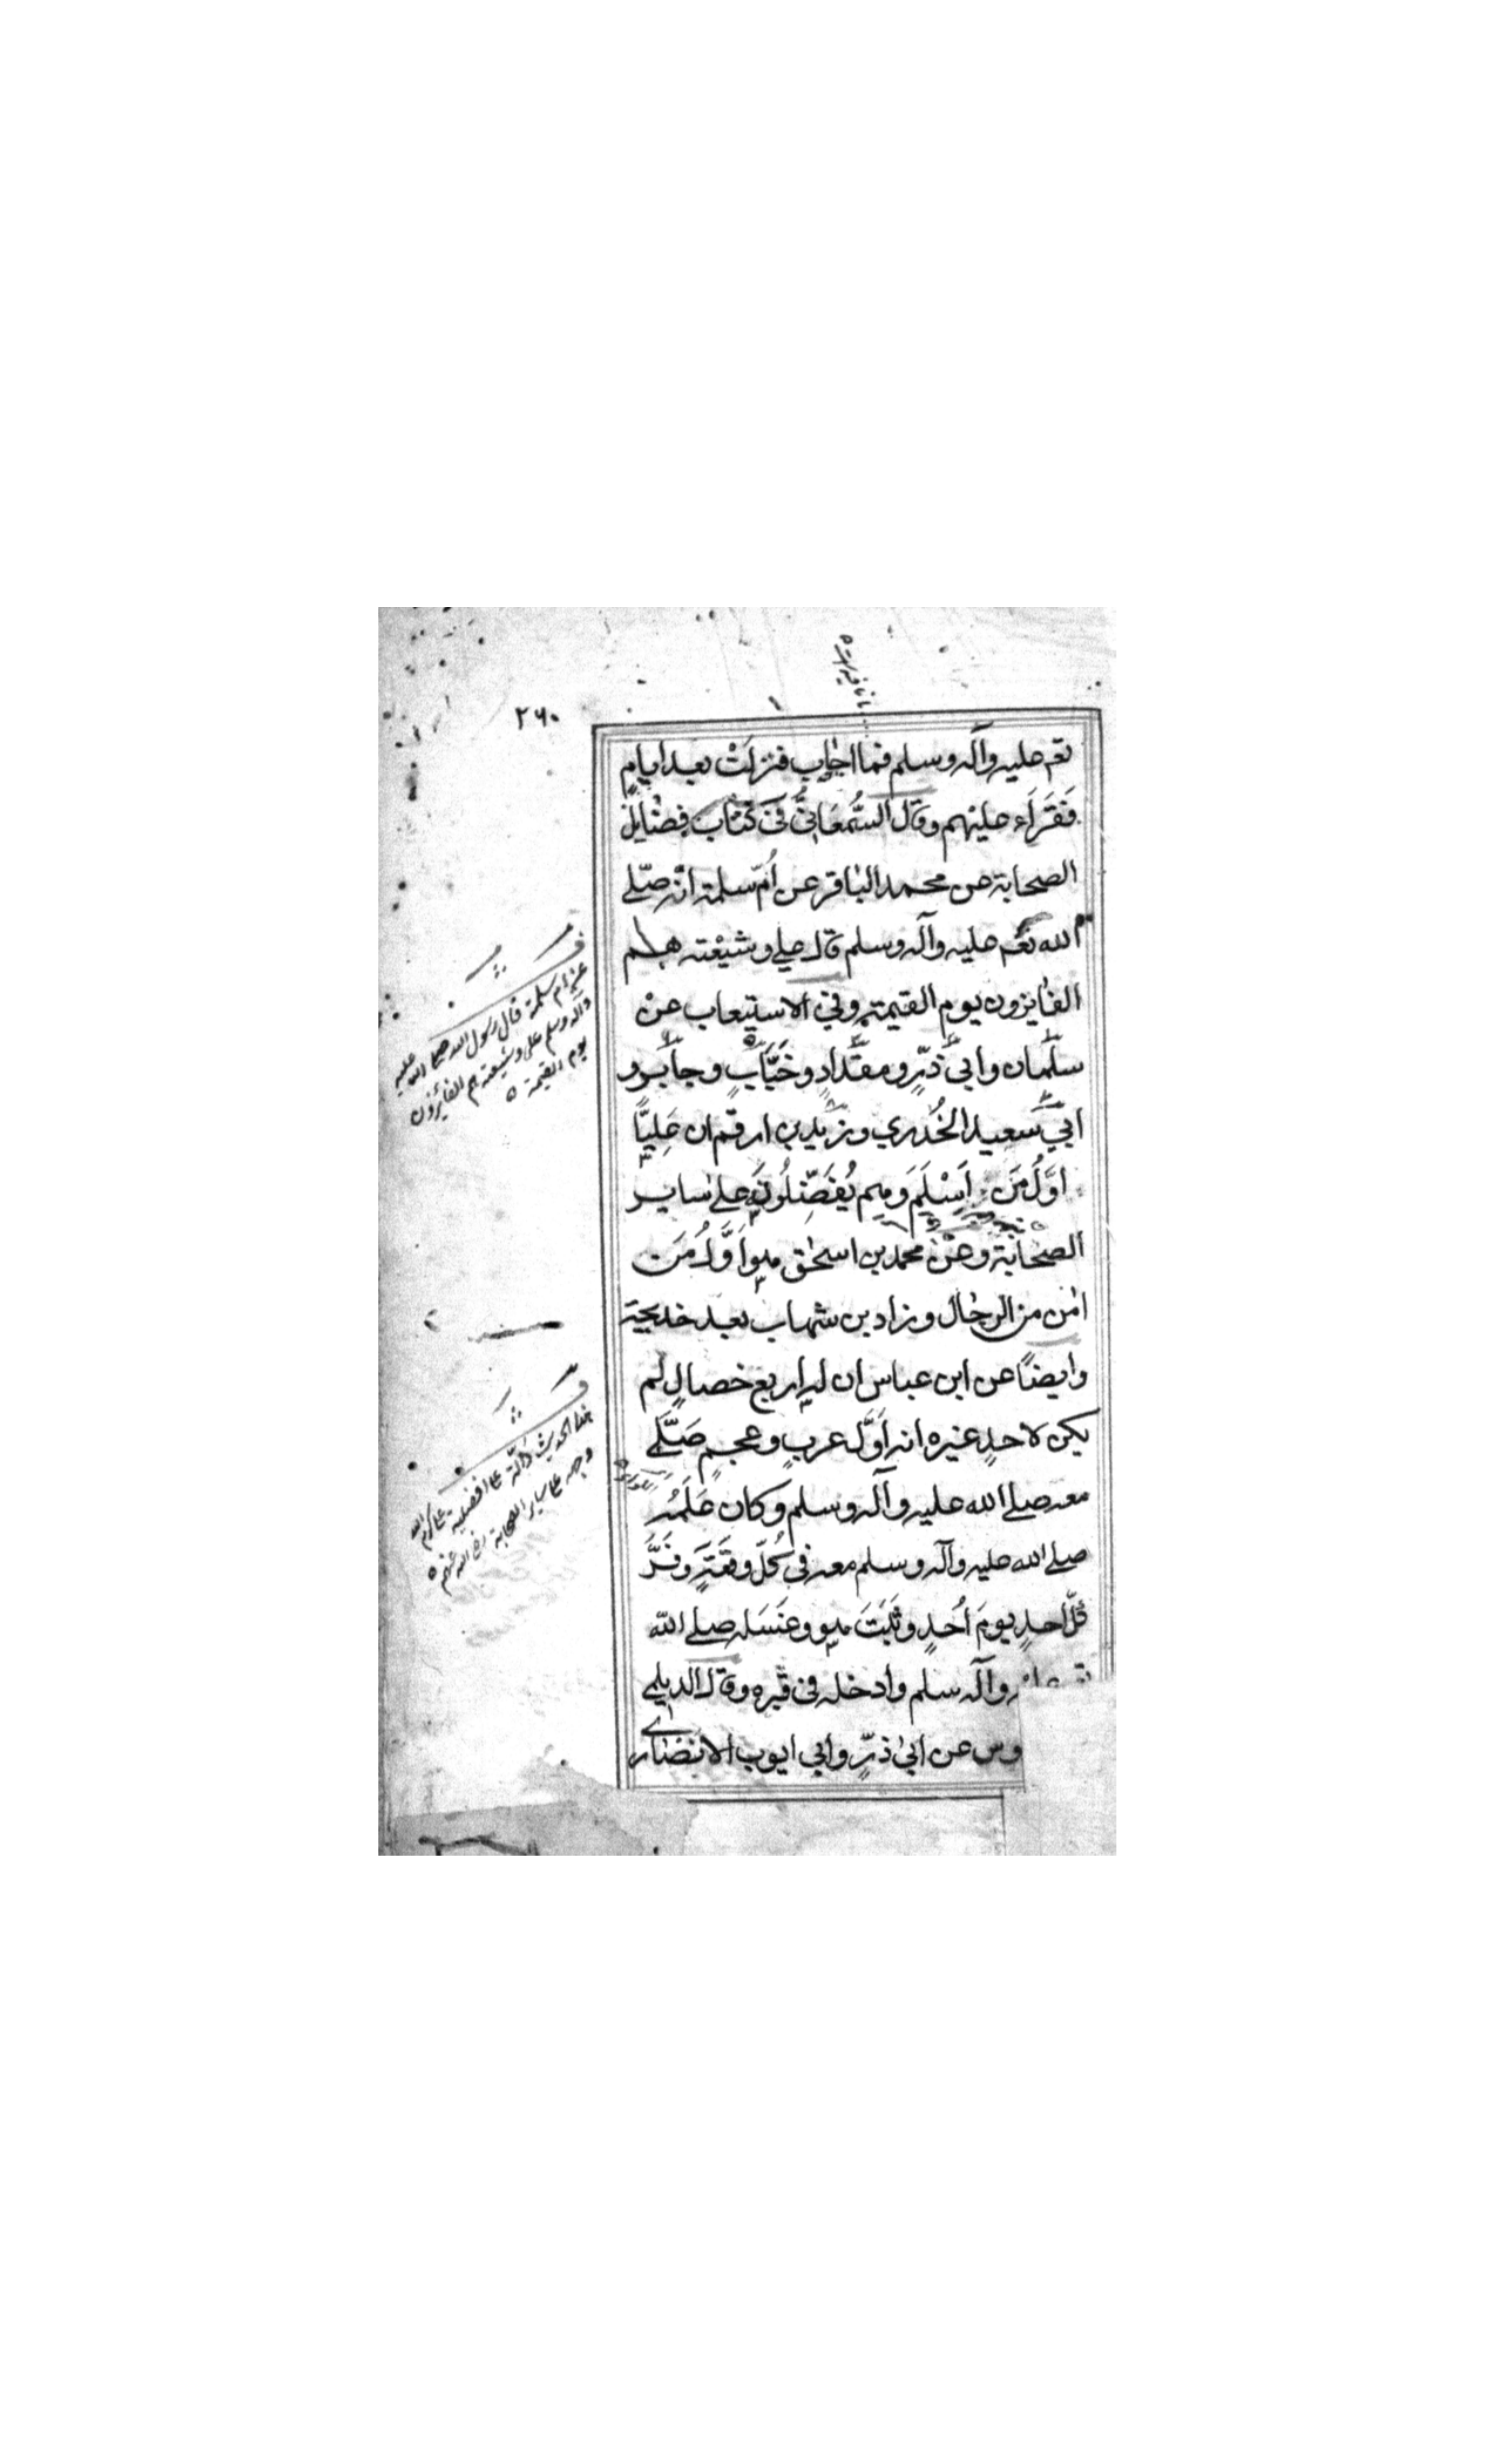 ٢٦٠
تعم عليه وآله وسلم فما اجاب فنزلت بعد ايام
فَقَرَاَء عليهم وقال السُّمعانيّ في كتاب فضايل
الصحابة عن محمد الباقر عن اُمّ سلمة انّه صلّے
الله تعم عليه وآله وسلم قال علي وشيعْته هم
الفايزون يوم القيمة وفي الاستيعاب عنْ
سلمان وابي ذرٍّ ومقدادٍ وخَبَّابٍ وجابرٍ و
ابي سعيد الخُدري وزيد بن ارقم ان عَلِيًّا
اوَّلُ من اَسْلَمَ وهم يُفَضِّلُونَه علے ساير
الصحابة وعن محمد بن اسحٰق هو اَوَّلُ مَن
اٰمن من الرجال وزاد بن شهاب بعد خديجة
وايضًا عن ابن عباس ان له اربع خصالٍ لم
يكن لاحدٍ غيره انه اَوَّل عربٍ وعجمٍ صَلَّے
معه صلے الله عليه وآله وسلم وكان عَلَمُه
صلے الله عليه وآله وسلم معه في كُلّ وقعَةٍ وفَرَّ
كُلّ احدٍ يومَ اُحُدٍ وثَبَتَ هو وغَسَله صلے الله
وآله سلم وادخله في قبره وقال الديلمے
عن ابي ذرٍّ وابي ايوب الانصارے
عن ام سلمة قال رسول الله صلے الله عليه
وآله وسلم علي وشيعته هم الفائزون
يوم القيمة
هذا الحديث دالّة علے افضلية علي كرم الله
وجهه علے ساير الصحابة رضي الله عنهم